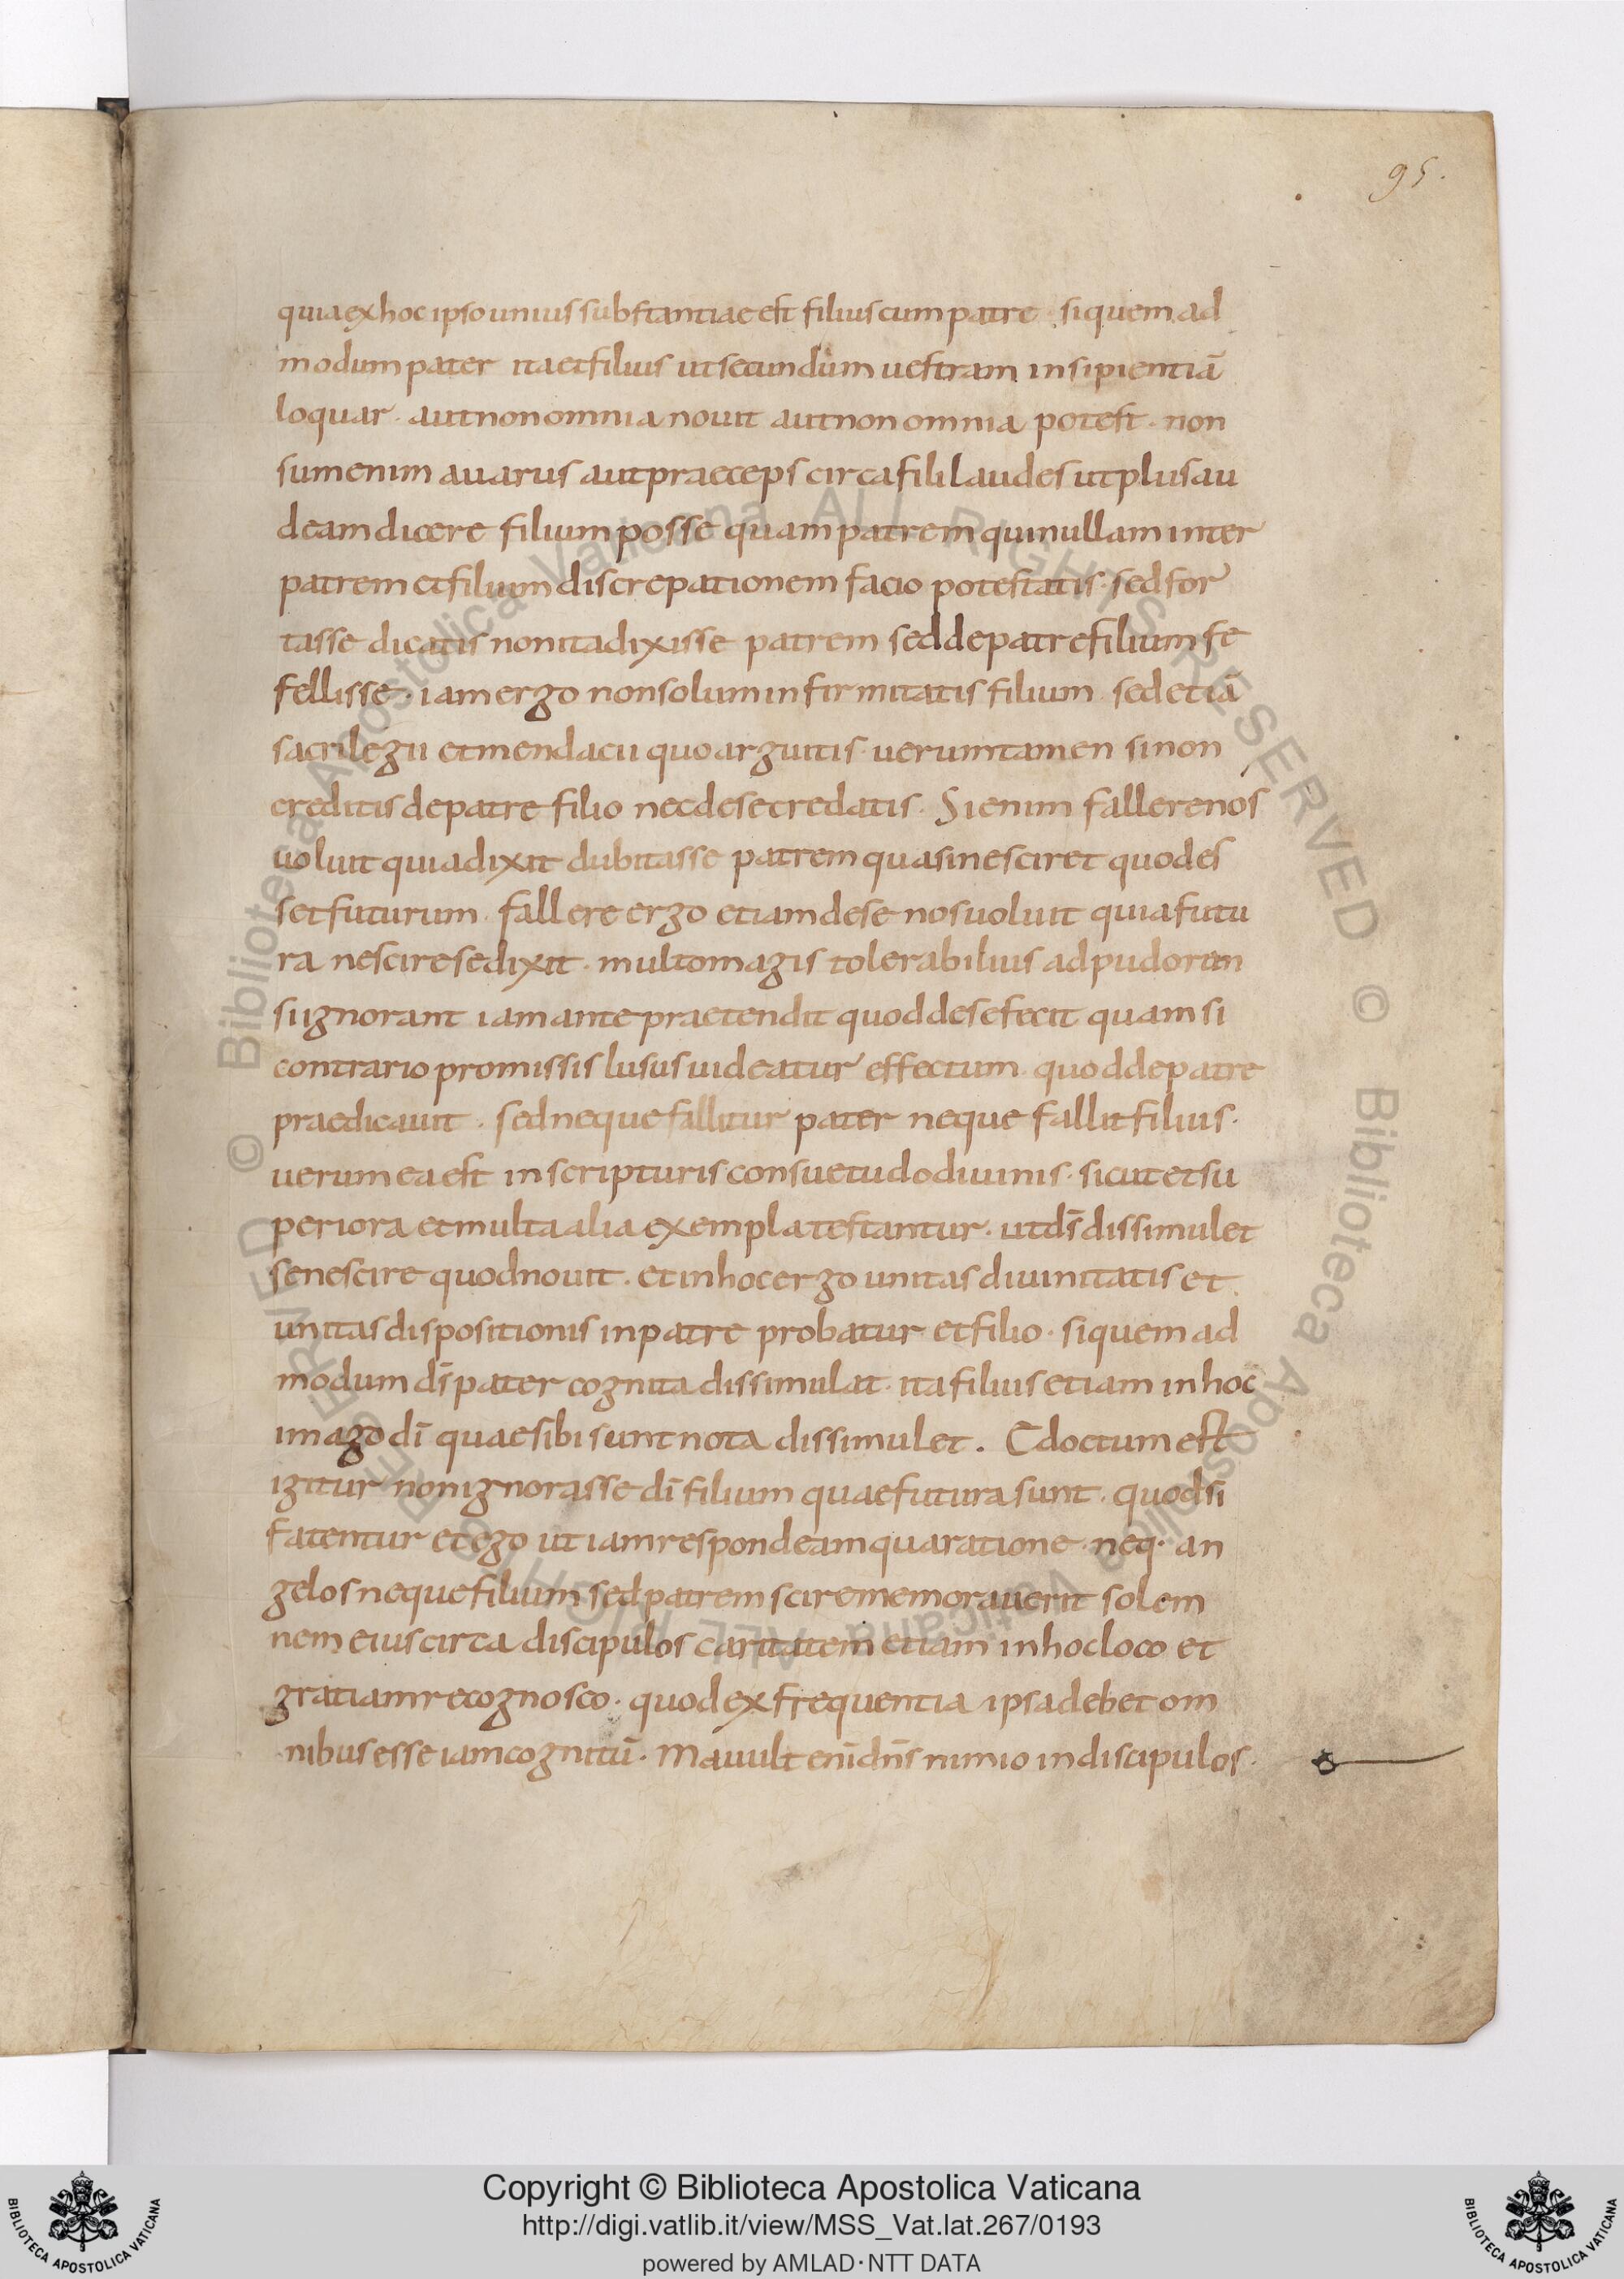 95.
quia ex hoc ipso unius substantiae est filius cum patre · si quem ad
modum pater ita et filius ut secundum uestram insipientiā
loquar · aut non omnia nouit aut non omnia potest · non
sum enim auarus aut praeceps circa fili laudes ut plus au
deam dicere filium posse quam patrem qui nullam inter
patrem et filium discrepationem facio potestatis · sed for
tasse dicatis non ita dixisse patrem sed de patre filium se
fellisse · iam ergo non solum infirmitatis filium sed etiā
sacrilegii et mendacii quo arguitis · uerumtamen si non
creditis de patre filio nec de se credatis · Si enim fallere nos
uoluit quia dixit dubitasse patrem quasi nesciret quod es
set futurum · fallere ergo etiam de se nos uoluit quia futu
ra nescire se dixit · multo magis tolerabilius ad pudorem
si ignorant iam ante praetendit quod de se fecit quam si
contrario promissis lusus uideatur effectum quod de patre
praedicauit · sed neque fallitur pater neque fallit filius ·
uerum ea est in scripturis consuetudo diuinis · sicut et su
periora et multa alia exempla testantur · ut d̄s dissimulet
se nescire quod nouit · et in hoc ergo unitas diuinitatis et
unitas dispositionis in patre probatur et filio · si quem ad
modum d̄s pater cognita dissimulat · ita filius etiam in hoc
imago dī quae sibi sunt nota dissimulet . Edoctum est
igitur non ignorasse dī filium quae futura sunt · quod si
fatentur et ego ut iam respondeam qua ratione · neq· an
gelos neque filium sed patrem scire memorauerit solem
nem eius circa discipulos caritatem etiam in hoc loco et
gratiam recognosco · quod ex frequentia ipsa debet om
nibus esse iam cognitū · Mauult enī dn̄s nimio in discipulos ·
© Biblioteca Apostolica Vaticana ALL RIGHTS RESERVED © Biblioteca Apostolica Vaticana ALL RIGHTS RESERVED
Copyright © Biblioteca Apostolica Vaticana
http://digi.vatlib.it/view/MSS_Vat.lat.267/0193
powered by AMLAD·NTT DATA
BIBLIOTECA APOSTOLICA VATICANA
BIBLIOTECA APOSTOLICA VATICANA